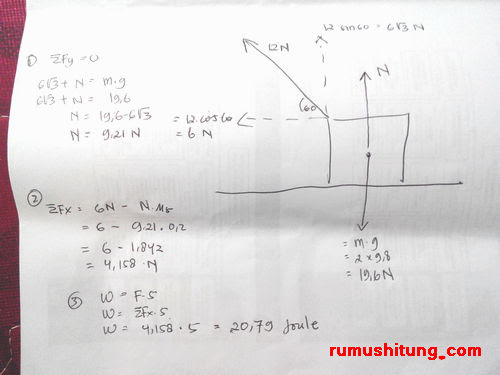 ① ΣFy = 0
6√3 + N = m.g
6√3 + N = 19,6
N = 19,6 - 6√3
N = 9.21 N
12 sin 60 = 6√3 N
12 N
N
60
= 12.cos 60
= 6 N
= m.g
= 2 x 9,8
= 19,6 N
② ΣFx = 6N - N.Ms
= 6 - 9.21.0,2
= 6 - 1,842
= 4,158.N
③ W = F.S
W = ΣFx.S
W = 4,158.5 = 20,79 Joule
rumushitung.com